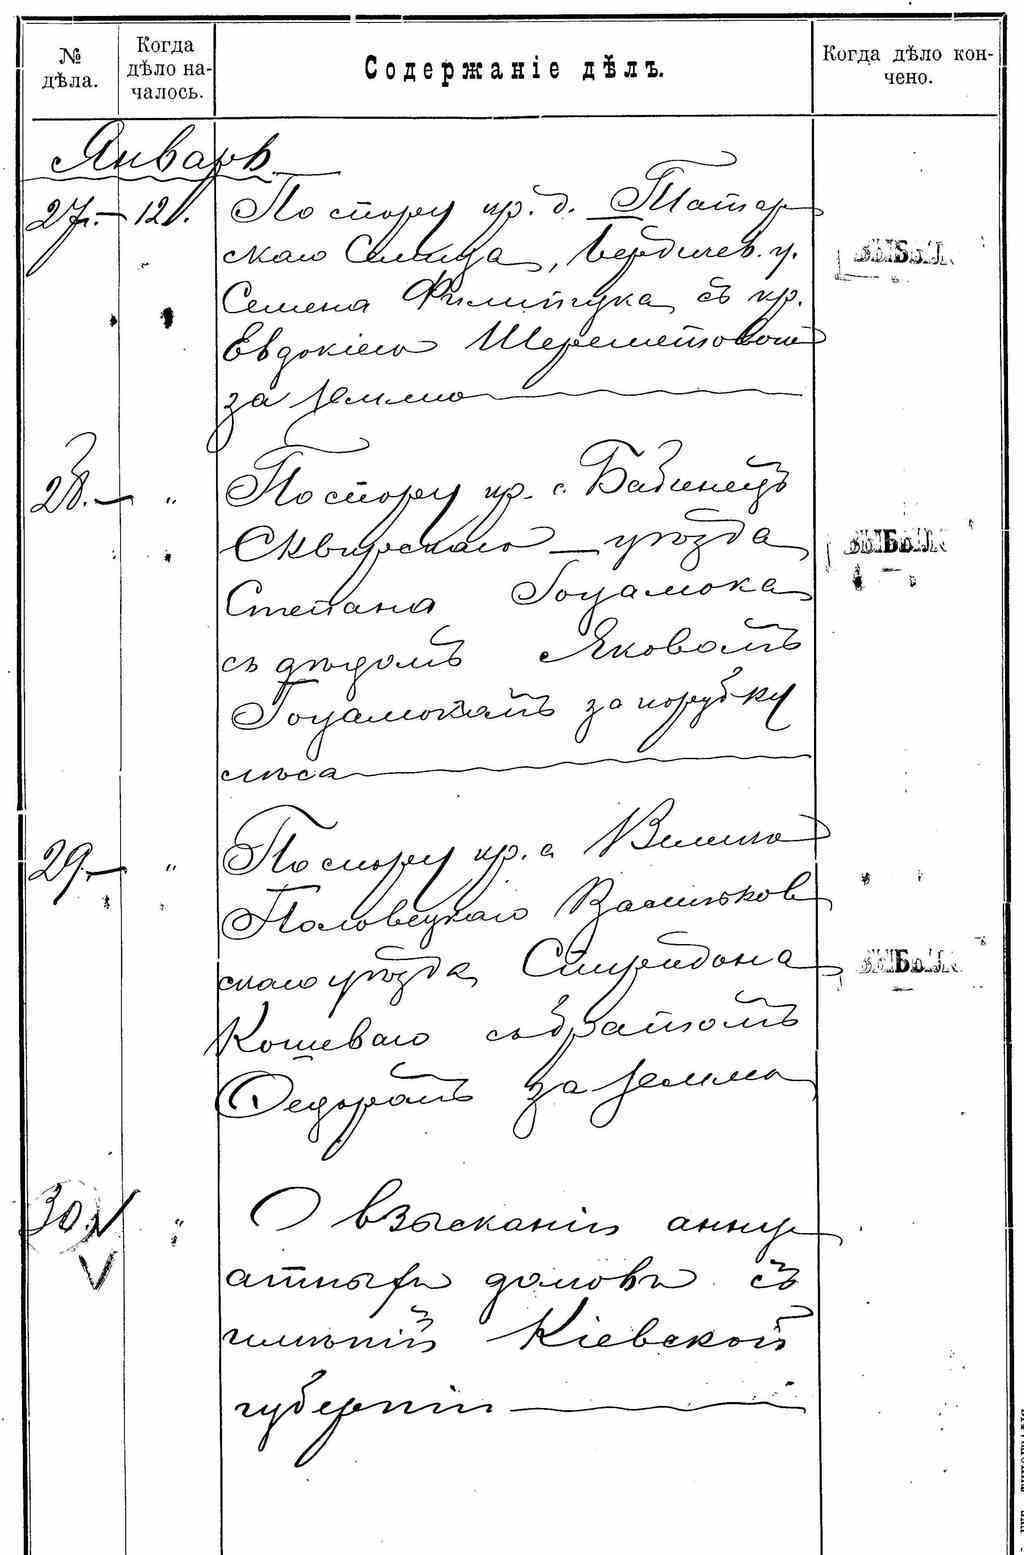 № дѣла.
Когда дѣло на-
чалось.
Содержаніе дѣлъ.
Когда дѣло кон-
чено.
Январь
27.— 12.
По спору кр. д. Татар
скаго Селища, Бердичев. у.
Семена Филипчука съ кр.
Евдокіею Шереметовой
за землю
ВЫБЫЛ
28.— "
По спору кр. с. Бабинецъ
Сквирскаго уѣзда
Степана Гоцалюка
съ дѣдомъ Яковомъ
Гоцалюкомъ за порубку
лѣса
ВЫБЫЛ
29.— "
По спору кр. с. Велико
Половецкаго Васильков
скаго уѣзда Спиридона
Кошеваго съ братомъ
Федоромъ за землю
ВЫБЫЛ
30. "
О взысканіи анну
атныхъ долговъ съ
имѣній Кіевской
губерніи